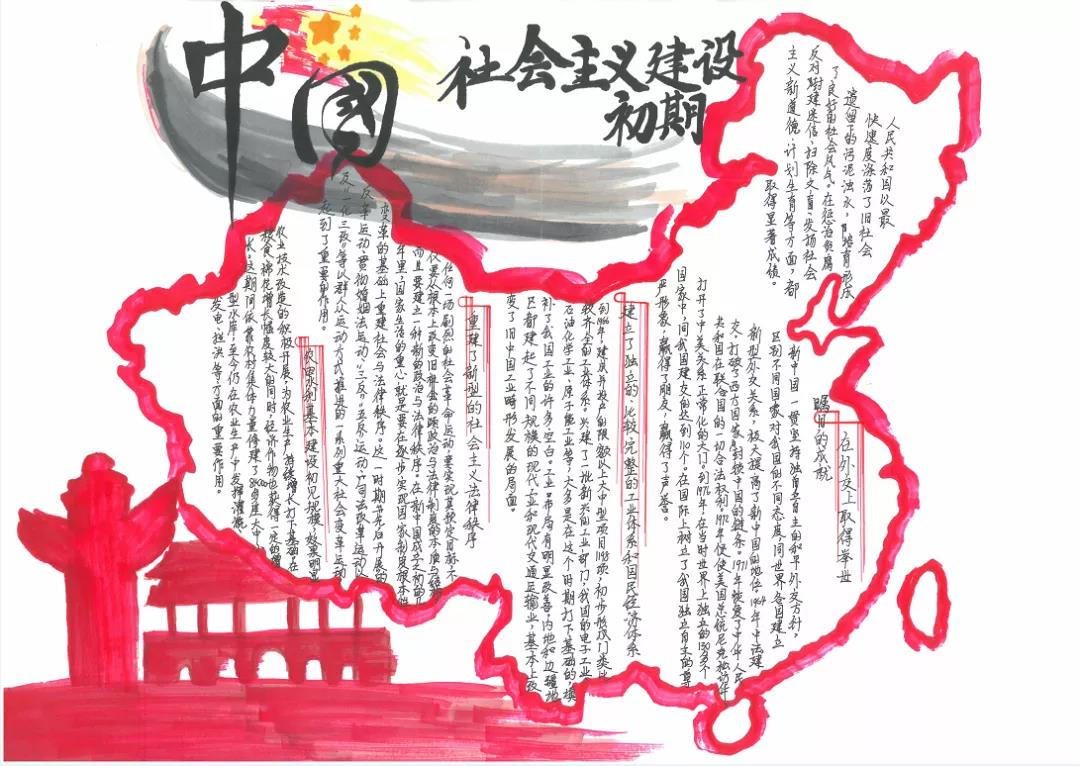 中国
社会主义建设
初期
人民共和国以最
快速度涤荡了旧社会
遗留下的污泥浊水，培育形成
了良好的社会风气。在惩治贪腐
反对封建迷信、扫除文盲、发扬社会
主义新道德、计划生育等方面，都
取得显著成绩。
在外交上取得举世
瞩目的成就
新中国一贯坚持独立自主的和平外交方针，
区别不同国家对我国的不同态度，同世界各国建立
新型外交关系，极大提高了新中国的地位。1964年中法建
交，打破了西方国家封锁中国的链条。1971年恢复了中华人民
共和国在联合国的一切合法权利，1972年促使美国总统尼克松访华
打开了中美关系正常化的大门。到1976年，在当时世界上独立的130多个
国家中，同我国建交的达到110个。在国际上树立了我国独立自主的尊
严形象，赢得了朋友，赢得了声誉。
建立了独立的、比较完整的工业体系和国民经济体系
到1966年建成并投产的限额以上大中型项目1198项，初步形成门类比
较齐全的工业体系。兴建了一批新兴的工业部门，我国的电子工业、
石油化学工业、原子能工业等，大多是在这个时期打下基础的，填
补了我国工业的许多空白。工业布局有明显改善，内地和边疆地
区都建起了不同规模的现代工业和现代交通运输业，基本上改
变了旧中国工业畸形发展的局面。
重建了新型的社会主义法律秩序
任何一场剧烈的社会革命运动，要实现其预定目标，不
仅要从根本上改变旧社会的旧政治与法律制度的本质
而且要建立一种新的政治与法律秩序。在新中国成立之初的几
年里，国家生活的重心，就是要在逐步实现国家制度根本性
变革的基础上重建社会与法律秩序。这一时期先后开展的
反革运动、贯彻婚姻法运动、“三反”“五反”运动、司法改革运动以
及“一化三改”等以群众运动方式推进的一系列重大社会变革运动
起到了重要作用。
农田水利基本建设初见规模，效果明显
农业技术改造的积极开展，为农业生产持续增长打下基础。在
粮食、棉花增长幅度较大的同时，经济作物也获得一定的增
长。这期间依靠农村集体力量修建了84000多座大中小
型水库，至今仍在农业生产中发挥灌溉、
发电、拦洪等方面的重要作用。